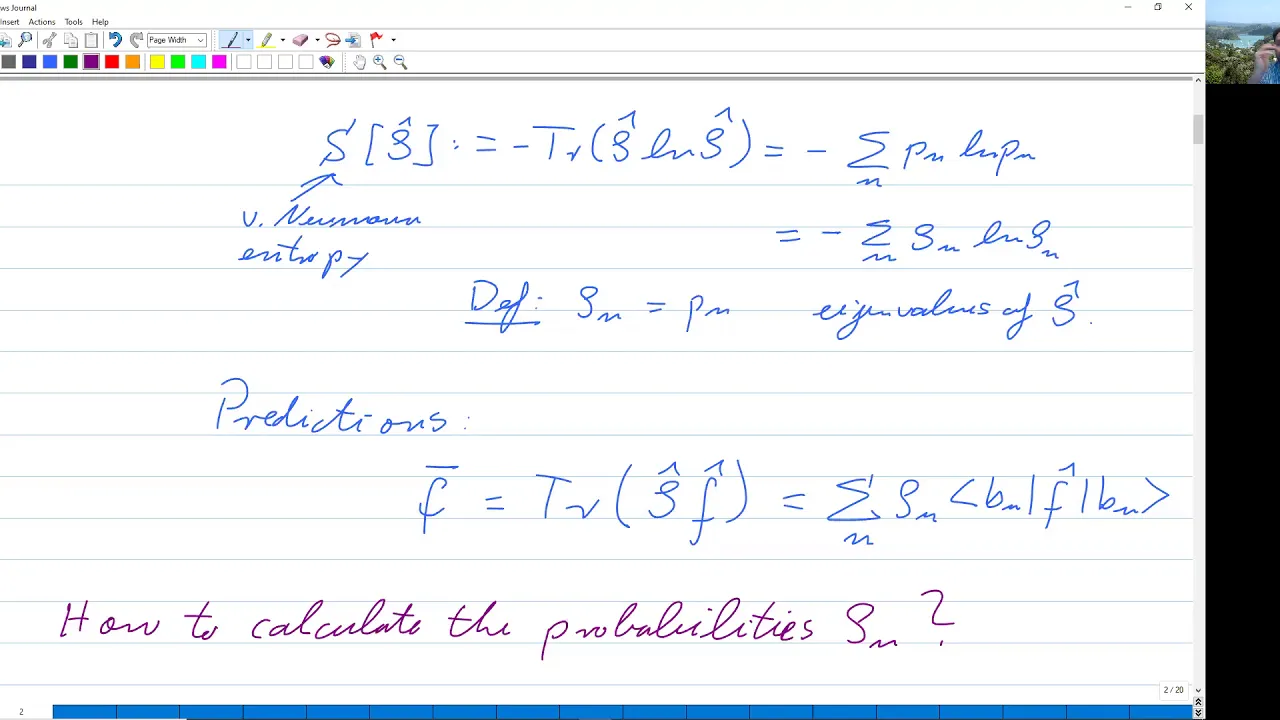 ws Journal
Insert Actions Tools Help
Page Width
S[ρ̂] := -Tr(ρ̂ ln ρ̂) = - Σ_n p_n ln p_n
v. Neumann
entropy
= - Σ_n ρ_n ln ρ_n
Def: ρ_n = p_n eigenvalues of ρ̂.
Predictions:
f̄ = Tr(ρ̂ f̂) = Σ_n ρ_n <b_n|f̂|b_n>
How to calculate the probabilities ρ_n ?
2 / 20
2